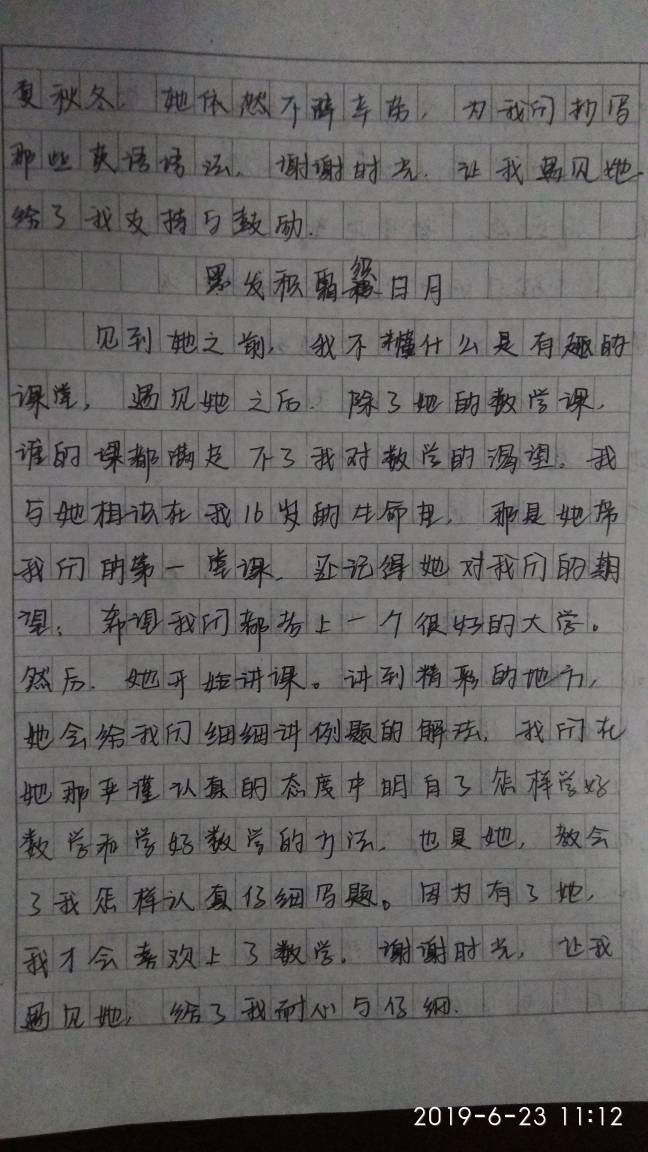 夏秋冬,她依然不辞辛劳,为我们抄写
那些英语语法。谢谢时光,让我遇见她
给了我支持与鼓励.
黑发积霜织日月
见到她之前,我不懂什么是有趣的
课堂,遇见她之后.除了她的数学课,
谁的课都满足不了我对数学的渴望。我
与她相识在我16岁的生命里,那是她带
我们的第一堂课,还记得她对我们的期
望:希望我们都考上一个很好的大学。
然后.她开始讲课。讲到精彩的地方,
她会给我们细细讲例题的解法,我们在
她那严谨认真的态度中明白了怎样学好
数学和学好数学的方法.也是她,教会
了我怎样认真仔细写题。因为有了她,
我才会喜欢上了数学。谢谢时光,让我
遇见她,给了我耐心与仔细.
2019-6-23 11:12